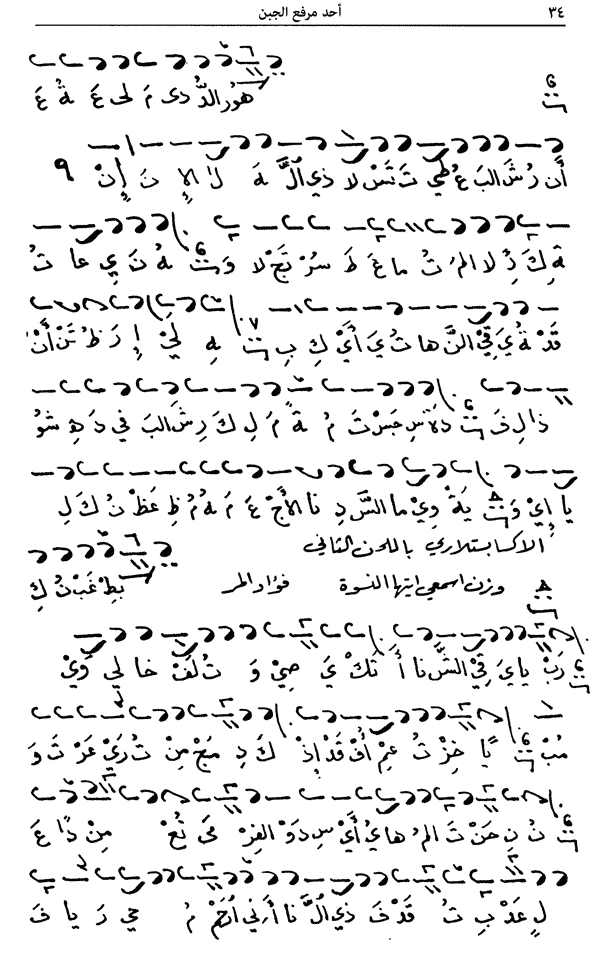 ٣٤ أحد مرفع الجبن
هور الدُّ دى مَ لى عَ ةُ عَ
أَن رُ شَ البَ عُ طي تَ تَسْ لا ذي الَّ ةَ لا الإِ نَ إِنْ ٩
ةِ كَ ذِ لا المُ تُ ما غَ طَ سُرْ تَجْ لا وَ هُ نَ يِ عا تُ
قَدْ ةُ يَ قِيْ النَّ ها تُ يَ أَيْ كِ بِ هِ لَيْ إِ رَ ظُ تَنْ أَنْ
ذا لِ فَ دَةً سِ جَسْ تَ مُ ةً مَ لِ كَ رِ شَ البَ في دَ هِ شو
يا إِيْ وَ يَةْ وِيْ ما السَّ دِ نا الأَجْ عَ مَ هُ مُ ظِ عَظْ نُ كَ لِ
الاكسابستلاري باللحن الثاني
وزن اسمعي ايتها النسوة فؤاد المر بِطْ غَبْ نُ كِ
رَبْ يا يَ قِيْ الشَّ نا أَ تَكْ يَ صِيْ وَ تُ لَفْ خا لي وَيْ
مُبْ يًا خِزْ تُ عِمْ أُفْ قَدْ إِذْ كَ دِ مَجْ مِنْ تُ رَيْ عَرْ تَ وَ
تُ نِ حَنْ تَ المُ ها يُ أَيْ سِ دَوْ الفِرْ مى نُعْ مِنْ ذًا عَ
لِ عَدْ بِ تُ قَدْ فَ ذي الَّ نا أَ ني ارْحَمْ مُ حي رَ يا فَ